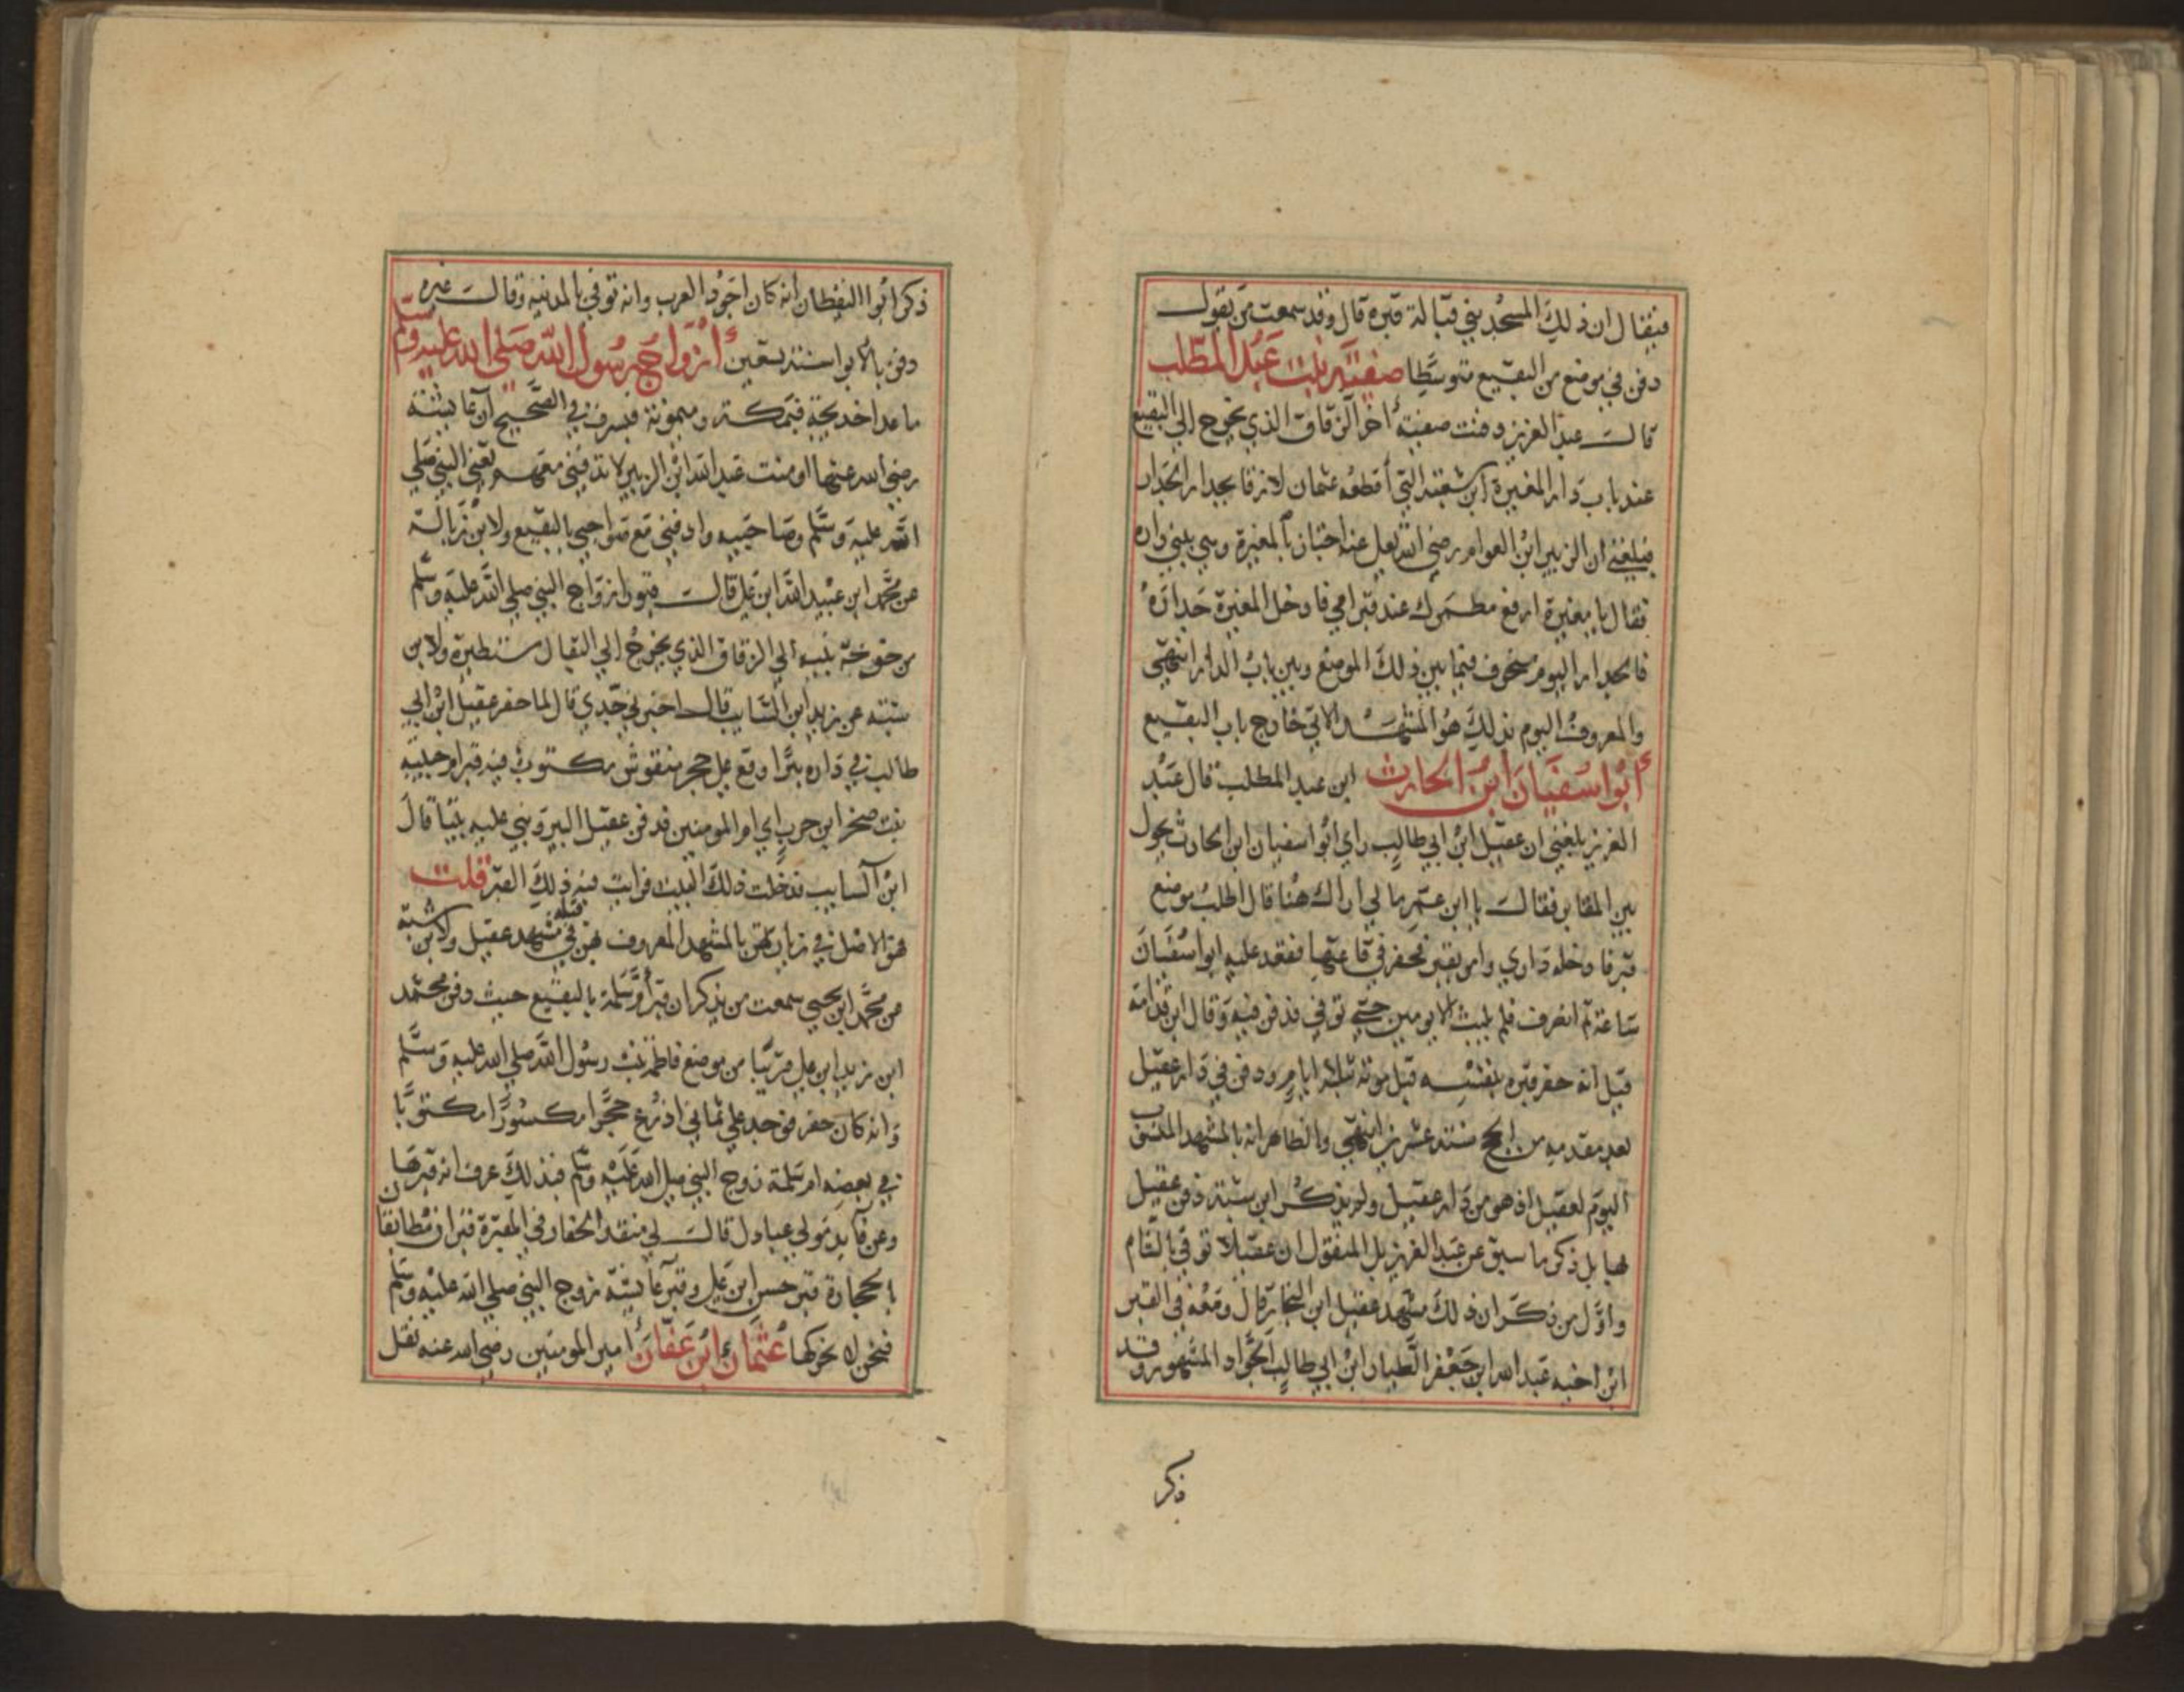 فيقال ان ذلك المسجد بني قبالة قبره قال وقد سمعت من يقول
دفن في موضع من البقيع متوسطا صفية بنت عبد المطلب
قال عبد العزيز دفنت صفية أخر الزقاق الذي يخرج الى البقيع
عند باب دار المغيرة ابن شعبة التي أقطعه عثمان لازقا بجدار الجدار
فبلغني ان الزبير ابن العوام رضي الله تعالى عنه اجتاز بالمغيرة وهي يبني داره
فقال يا مغيرة ارفع مطمرك عند قبر امي فادخل المغيرة جداره
فالجدار اليوم منحرف فيما بين ذلك الموضع وبين باب الدار انتهي
والمعروف اليوم بذلك هو المشهد الاتي خارج باب البقيع
أبوا سفيان ابن الحارث ابن عبد المطلب قال عبد
العزيز بلغني ان عقيل ابن ابي طالب راي ابوا سفيان ابن الحارث يجول
بين المقابر فقال يا ابن عم ما لي اراك هنا قال اطلب موضع
قبر فادخله داري وامر بقبر فحفر في قاعتها فقعد عليه ابوا سفيان
ساعة ثم انصرف فلم يلبث الا يومين حتى توفي فدفن فيه وقال ابن قدامة
قيل انه حفر قبره بنفسه قبل موته بثلاثة ايام ودفن في دار عقيل
بعد مقدمه من الحج سنة عشرين انتهي والظاهر انه بالمشهد المنسوب
اليوم لعقيل اذ هو من دار عقيل ولم يذكر ابن شبة دفن عقيل
بها بل ذكر ما سبق عن عبد العزيز بل المنقول ان عقيلا توفي بالشام
واول من ذكر ان ذلك مشهد عقيل ابن النجار قال ومعه في القبر
ابن اخيه عبد الله ابن جعفر الطيار ابن ابي طالب الجواد المشهور وقد
ذكر
ذكر ابوا اليقظان انه كان اجود العرب وانه توفي بالمدينة وقال غيره
دفن بالابوا سنة تسعين أزواج رسول الله صلى الله عليه وسلم
ما عدا خديجة فبمكة وميمونة فبسرف في الصحيح ان عائشة
رضي الله عنها اوصت عبد الله ابن الزبير لا تدفني معهم تعني النبي صلي
الله عليه وسلم وصاحبيه وادفني مع صواحبي بالبقيع ولابن زبالة
عن محمد ابن عبيد الله ابن علي قال قبول ازواج النبي صلي الله عليه وسلم
من خوخة بيه الي الزقاق الذي يخرج الي البقال مستطيرة ولابن
شبة عن زيد ابن السايب قال اخبرني جدي قال لما حفر عقيل ابن ابي
طالب في داره بئرا وقع على حجر منقوش مكتوب فيه قبر ام حبيبة
بنت صخر ابن حرب اي ام المومنين فدفن عقيل البير وبني عليه بيتا قال
ابن السايب فدخلت ذلك البيت فرايت فيه ذلك القبر قلت
هو الاصل في زيارتهن بالمشهد المعروف بهن في قبلة مشهد عقيل ولابن شبة
عن محمد ابن يحيي سمعت من يذكر ان قبر أم سلمة بالبقيع حيث دفن محمد
ابن زيد ابن علي قريبا من موضع فاطمة بنت رسول الله صلي الله عليه وسلم
وانه كان حفر فوجد علي ثماني اذرع حجرا مكسورا مكتوبا
في بعضه ام سلمة زوج النبي صلى الله عليه وسلم فبذلك عرف انه قبرها
وعن فايد مولي عبادل قال لي منقذ الحفار في المقبرة قبران مطابقان
بالحجارة قبر حسن ابن علي وقبر عائشة زوج النبي صلى الله عليه وسلم
فنحن لا نحركها عثمان ابن عفان أمير المومنين رضي الله عنه نقل